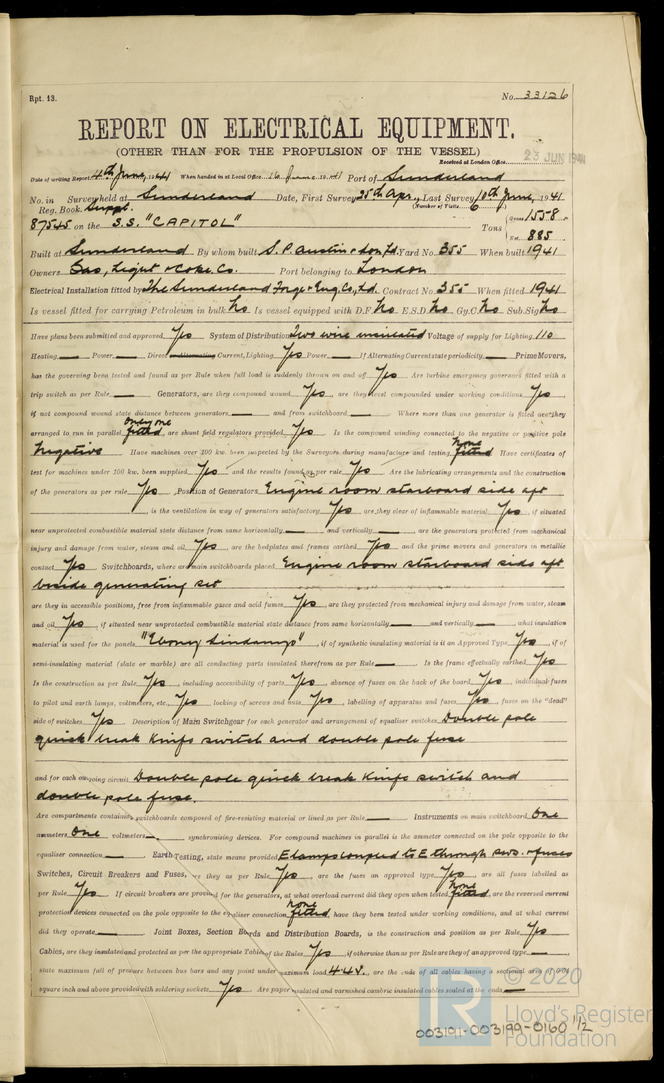 Rpt. 13.
No. 33126
REPORT ON ELECTRICAL EQUIPMENT.
(OTHER THAN FOR THE PROPULSION OF THE VESSEL)
Received at London Office 23 JUN 1941
Date of writing Report 4th June, 1941 When handed in at Local Office 16 June 1941 Port of Sunderland
No. in Survey held at Sunderland Date, First Survey 25th Apr., Last Survey 10th June, 1941
Reg. Book. Suppl. (Number of Visits 6)
87545 on the S.S. "CAPITOL" Tons { Gross 1558 Net 885
Built at Sunderland By whom built S.P. Austin & Son, Ld. Yard No. 355 When built 1941
Owners Gas, Light & Coke Co. Port belonging to London
Electrical Installation fitted by The Sunderland Forge & Eng. Co., Ld. Contract No. 355 When fitted 1941
Is vessel fitted for carrying Petroleum in bulk No Is vessel equipped with D.F. No E.S.D. No Gy.C. No Sub.Sig. No
Have plans been submitted and approved Yes System of Distribution Two wire insulated Voltage of supply for Lighting 110
Heating — Power — Direct or Alternating Current, Lighting Yes Power — If Alternating Current state periodicity — Prime Movers,
has the governing been tested and found as per Rule when full load is suddenly thrown on and off Yes Are turbine emergency governors fitted with a
trip switch as per Rule — Generators, are they compound wound Yes, are they level compounded under working conditions Yes,
if not compound wound state distance between generators — and from switchboard — Where more than one generator is fitted are they
arranged to run in parallel only one fitted, are shunt field regulators provided Yes Is the compound winding connected to the negative or positive pole
Negative Have machines over 100 kw. been inspected by the Surveyors during manufacture and testing None fitted Have certificates of
test for machines under 100 kw. been supplied Yes and the results found as per rule Yes Are the lubricating arrangements and the construction
of the generators as per rule Yes Position of Generators Engine room starboard side aft
is the ventilation in way of generators satisfactory Yes are they clear of inflammable material Yes, if situated
near unprotected combustible material state distance from same horizontally — and vertically —, are the generators protected from mechanical
injury and damage from water, steam and oil Yes, are the bedplates and frames earthed Yes and the prime movers and generators in metallic
contact Yes Switchboards, where are main switchboards placed Engine room starboard side aft
beside generating set
are they in accessible positions, free from inflammable gases and acid fumes Yes, are they protected from mechanical injury and damage from water, steam
and oil Yes, if situated near unprotected combustible material state distance from same horizontally — and vertically —, what insulation
material is used for the panels "Ebony Sindanyo", if of synthetic insulating material is it an Approved Type Yes, if of
semi-insulating material (slate or marble) are all conducting parts insulated therefrom as per Rule — Is the frame effectually earthed Yes
Is the construction as per Rule Yes, including accessibility of parts Yes, absence of fuses on the back of the board Yes, individual fuses
to pilot and earth lamps, voltmeters, etc. Yes locking of screws and nuts Yes, labelling of apparatus and fuses Yes, fuses on the "dead"
side of switches Yes Description of Main Switchgear for each generator and arrangement of equaliser switches Double pole
quick break knife switch and double pole fuse
and for each outgoing circuit Double pole quick break knife switch and
double pole fuse.
Are compartments containing switchboards composed of fire-resisting material or lined as per Rule — Instruments on main switchboard One
ammeters One voltmeters — synchronising devices. For compound machines in parallel is the ammeter connected on the pole opposite to the
equaliser connection — Earth Testing, state means provided E lamps coupled to E through sws. & fuses
Switches, Circuit Breakers and Fuses, are they as per Rule Yes, are the fuses an approved type Yes, are all fuses labelled as
per Rule Yes If circuit breakers are provided for the generators, at what overload current did they open when tested None fitted, are the reversed current
protection devices connected on the pole opposite to the equaliser connection None fitted, have they been tested under working conditions, and at what current
did they operate — Joint Boxes, Section Boards and Distribution Boards, is the construction and position as per Rule Yes
Cables, are they insulated and protected as per the appropriate Tables of the Rules Yes, if otherwise than as per Rule are they of an approved type —,
state maximum fall of pressure between bus bars and any point under maximum load 4.4 V., are the ends of all cables having a sectional area of 0.04
square inch and above provided with soldering sockets Yes Are paper insulated and varnished cambric insulated cables sealed at the ends —
© 2020
LR
Lloyd's Register
Foundation
003191-003199-0160 1/2